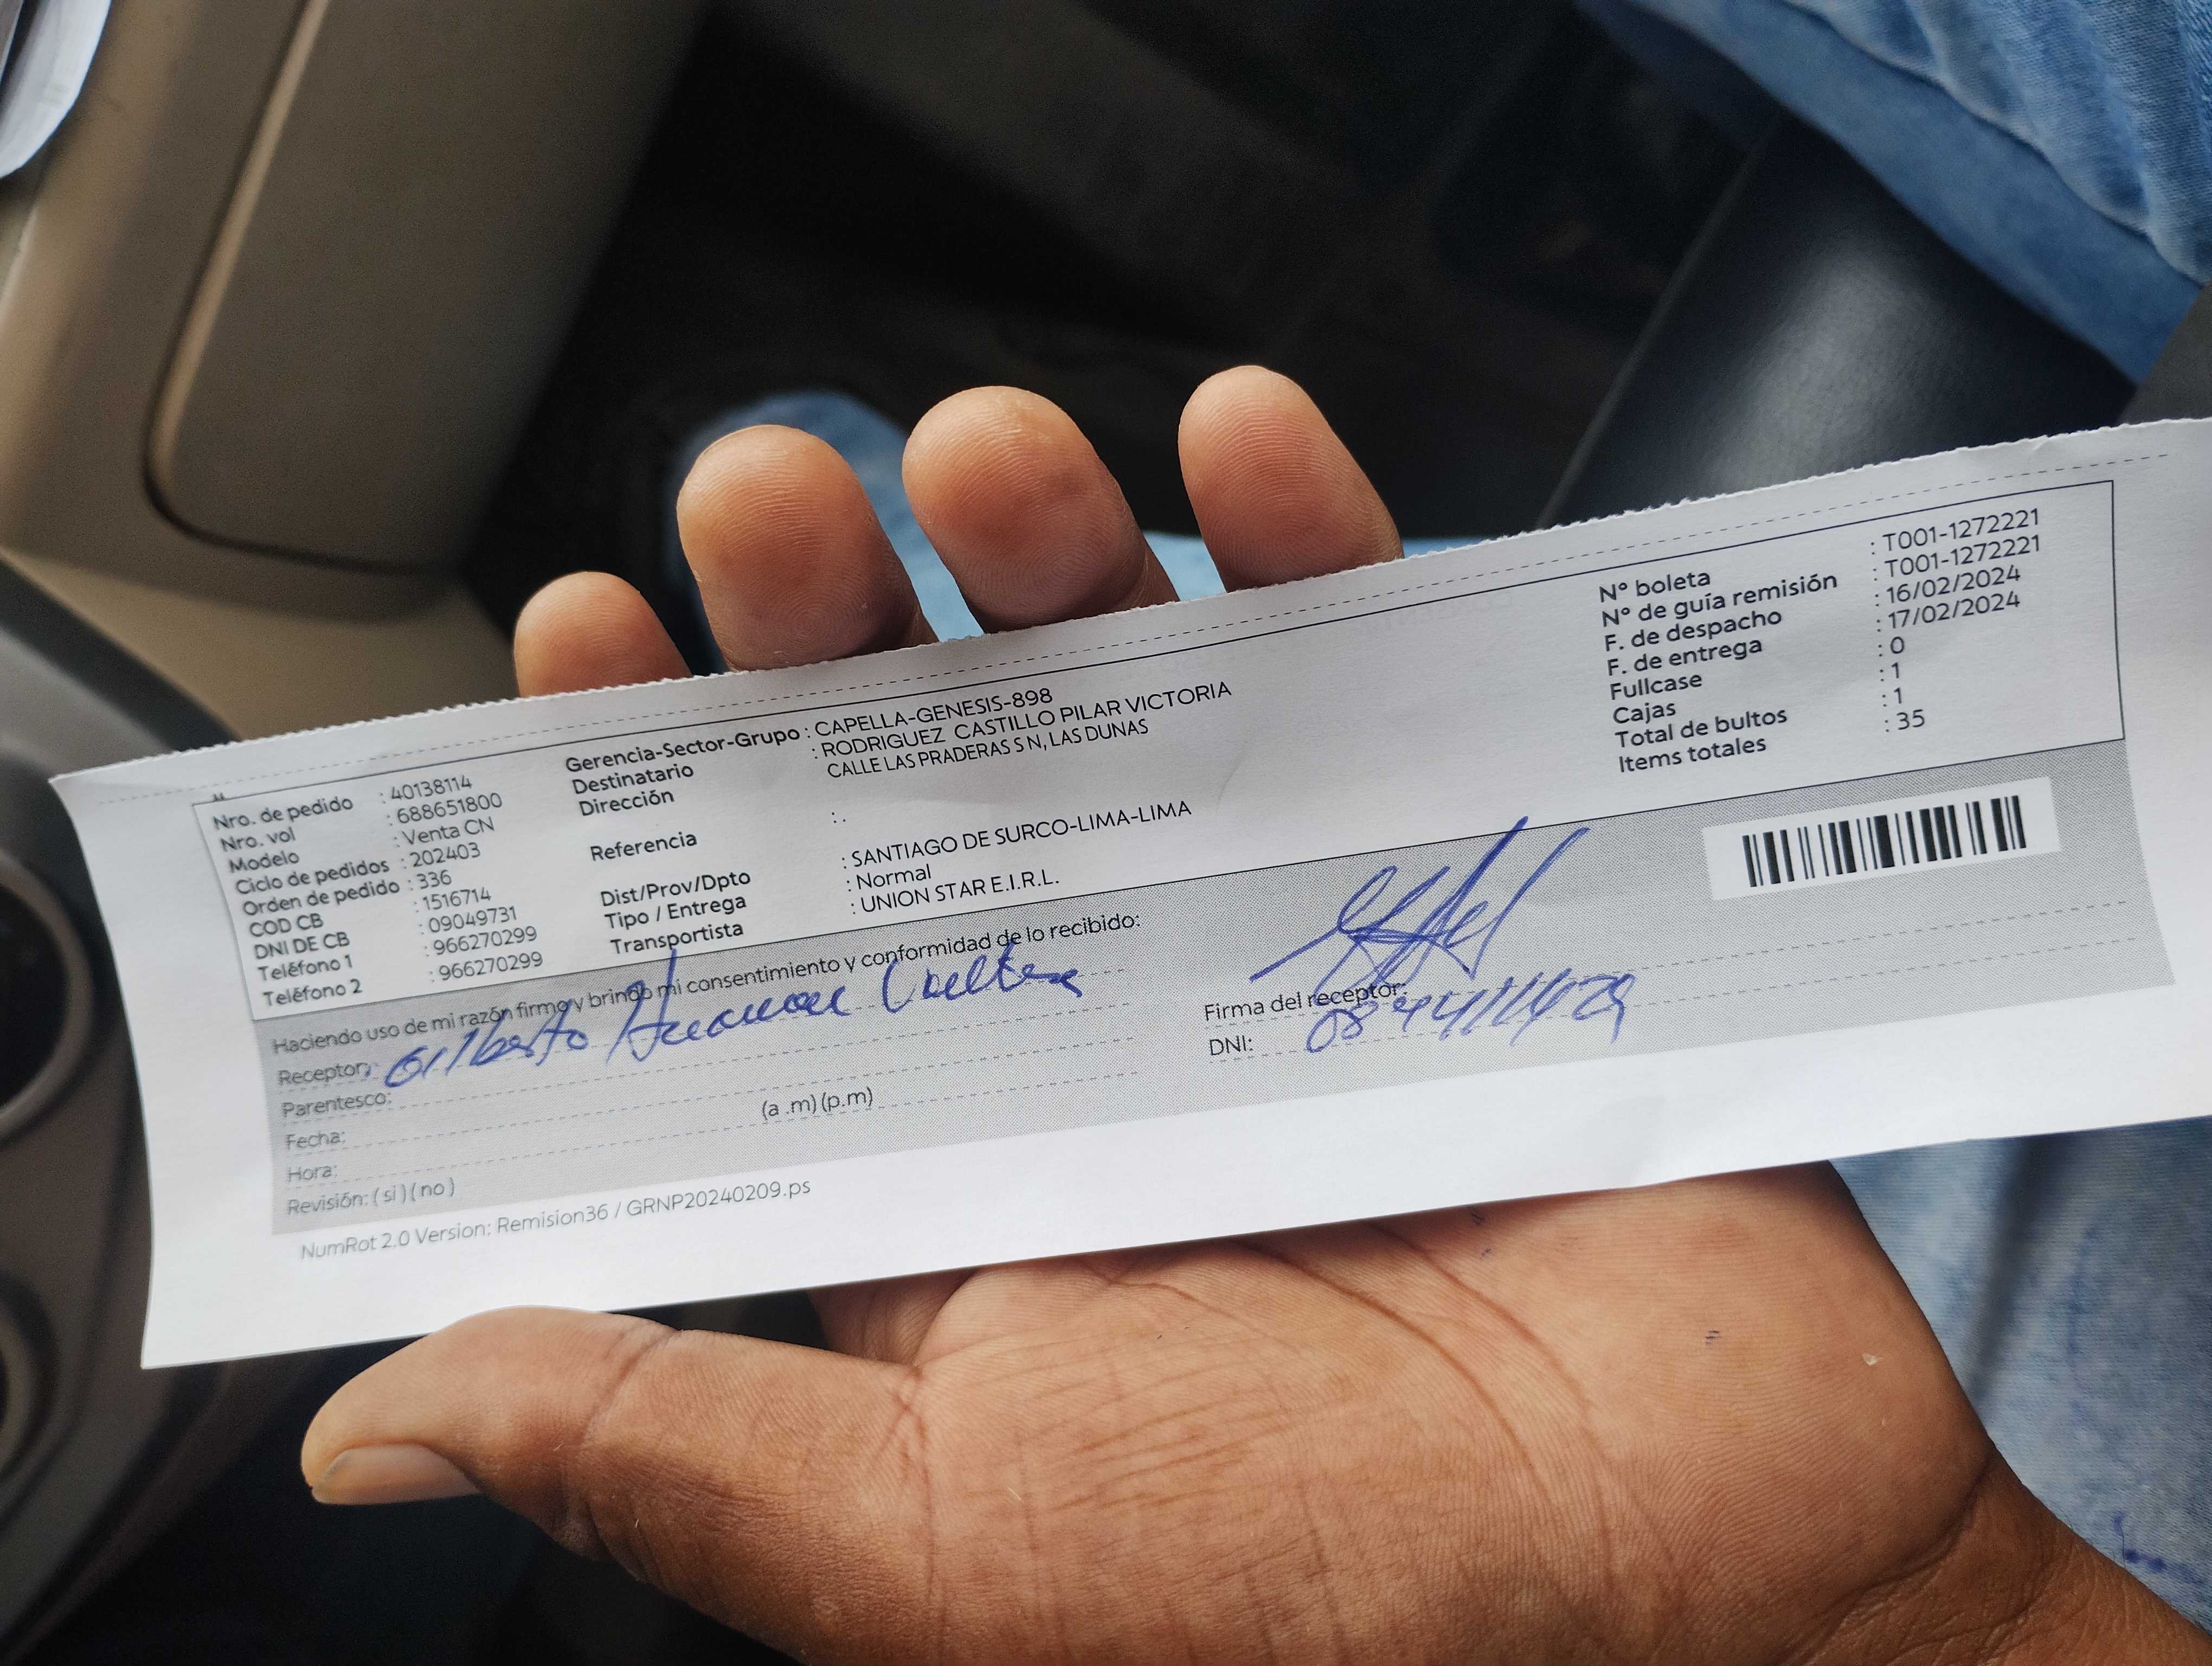 Nro. de pedido : 40138114
Nro. vol : 688651800
Modelo : Venta CN
Ciclo de pedidos : 202403
Orden de pedido : 336
COD CB : 1516714
DNI DE CB : 09049731
Teléfono 1 : 966270299
Teléfono 2 : 966270299
Gerencia-Sector-Grupo : CAPELLA-GENESIS-898
Destinatario : RODRIGUEZ CASTILLO PILAR VICTORIA
Dirección CALLE LAS PRADERAS S N, LAS DUNAS
Referencia : .
Dist/Prov/Dpto : SANTIAGO DE SURCO-LIMA-LIMA
Tipo / Entrega : Normal
Transportista : UNION STAR E.I.R.L.
N° boleta : T001-1272221
N° de guía remisión : T001-1272221
F. de despacho : 16/02/2024
F. de entrega : 17/02/2024
Fullcase : 0
Cajas : 1
Total de bultos : 1
Items totales : 35
Haciendo uso de mi razón firmo y brindo mi consentimiento y conformidad de lo recibido:
Receptor: Gilberto Huaman
Parentesco:
Fecha:
Hora: (a .m) (p.m)
Revisión: ( si ) ( no )
Firma del receptor:
DNI:
NumRot 2.0 Version: Remision36 / GRNP20240209.ps